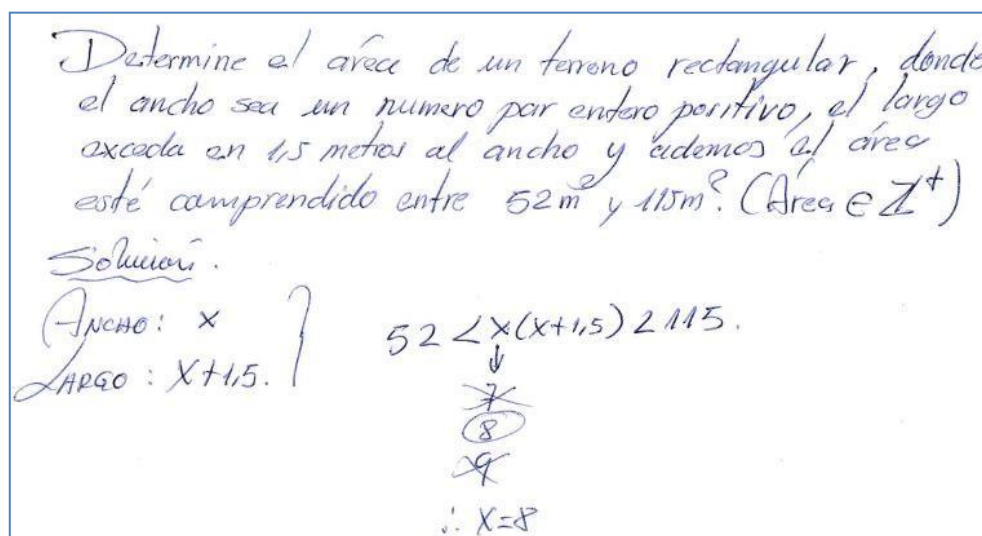 Determine el área de un terreno rectangular, donde
el ancho sea un numero par entero positivo, el largo
exceda en 1,5 metros al ancho y ademas el área
esté comprendido entre 52m² y 115m². (Área ∈ Z⁺)
Solucion.
ANCHO: x
LARGO: X+1,5.
52 < x(x+1,5) < 115.
↓
7
8
9
∴ X=8